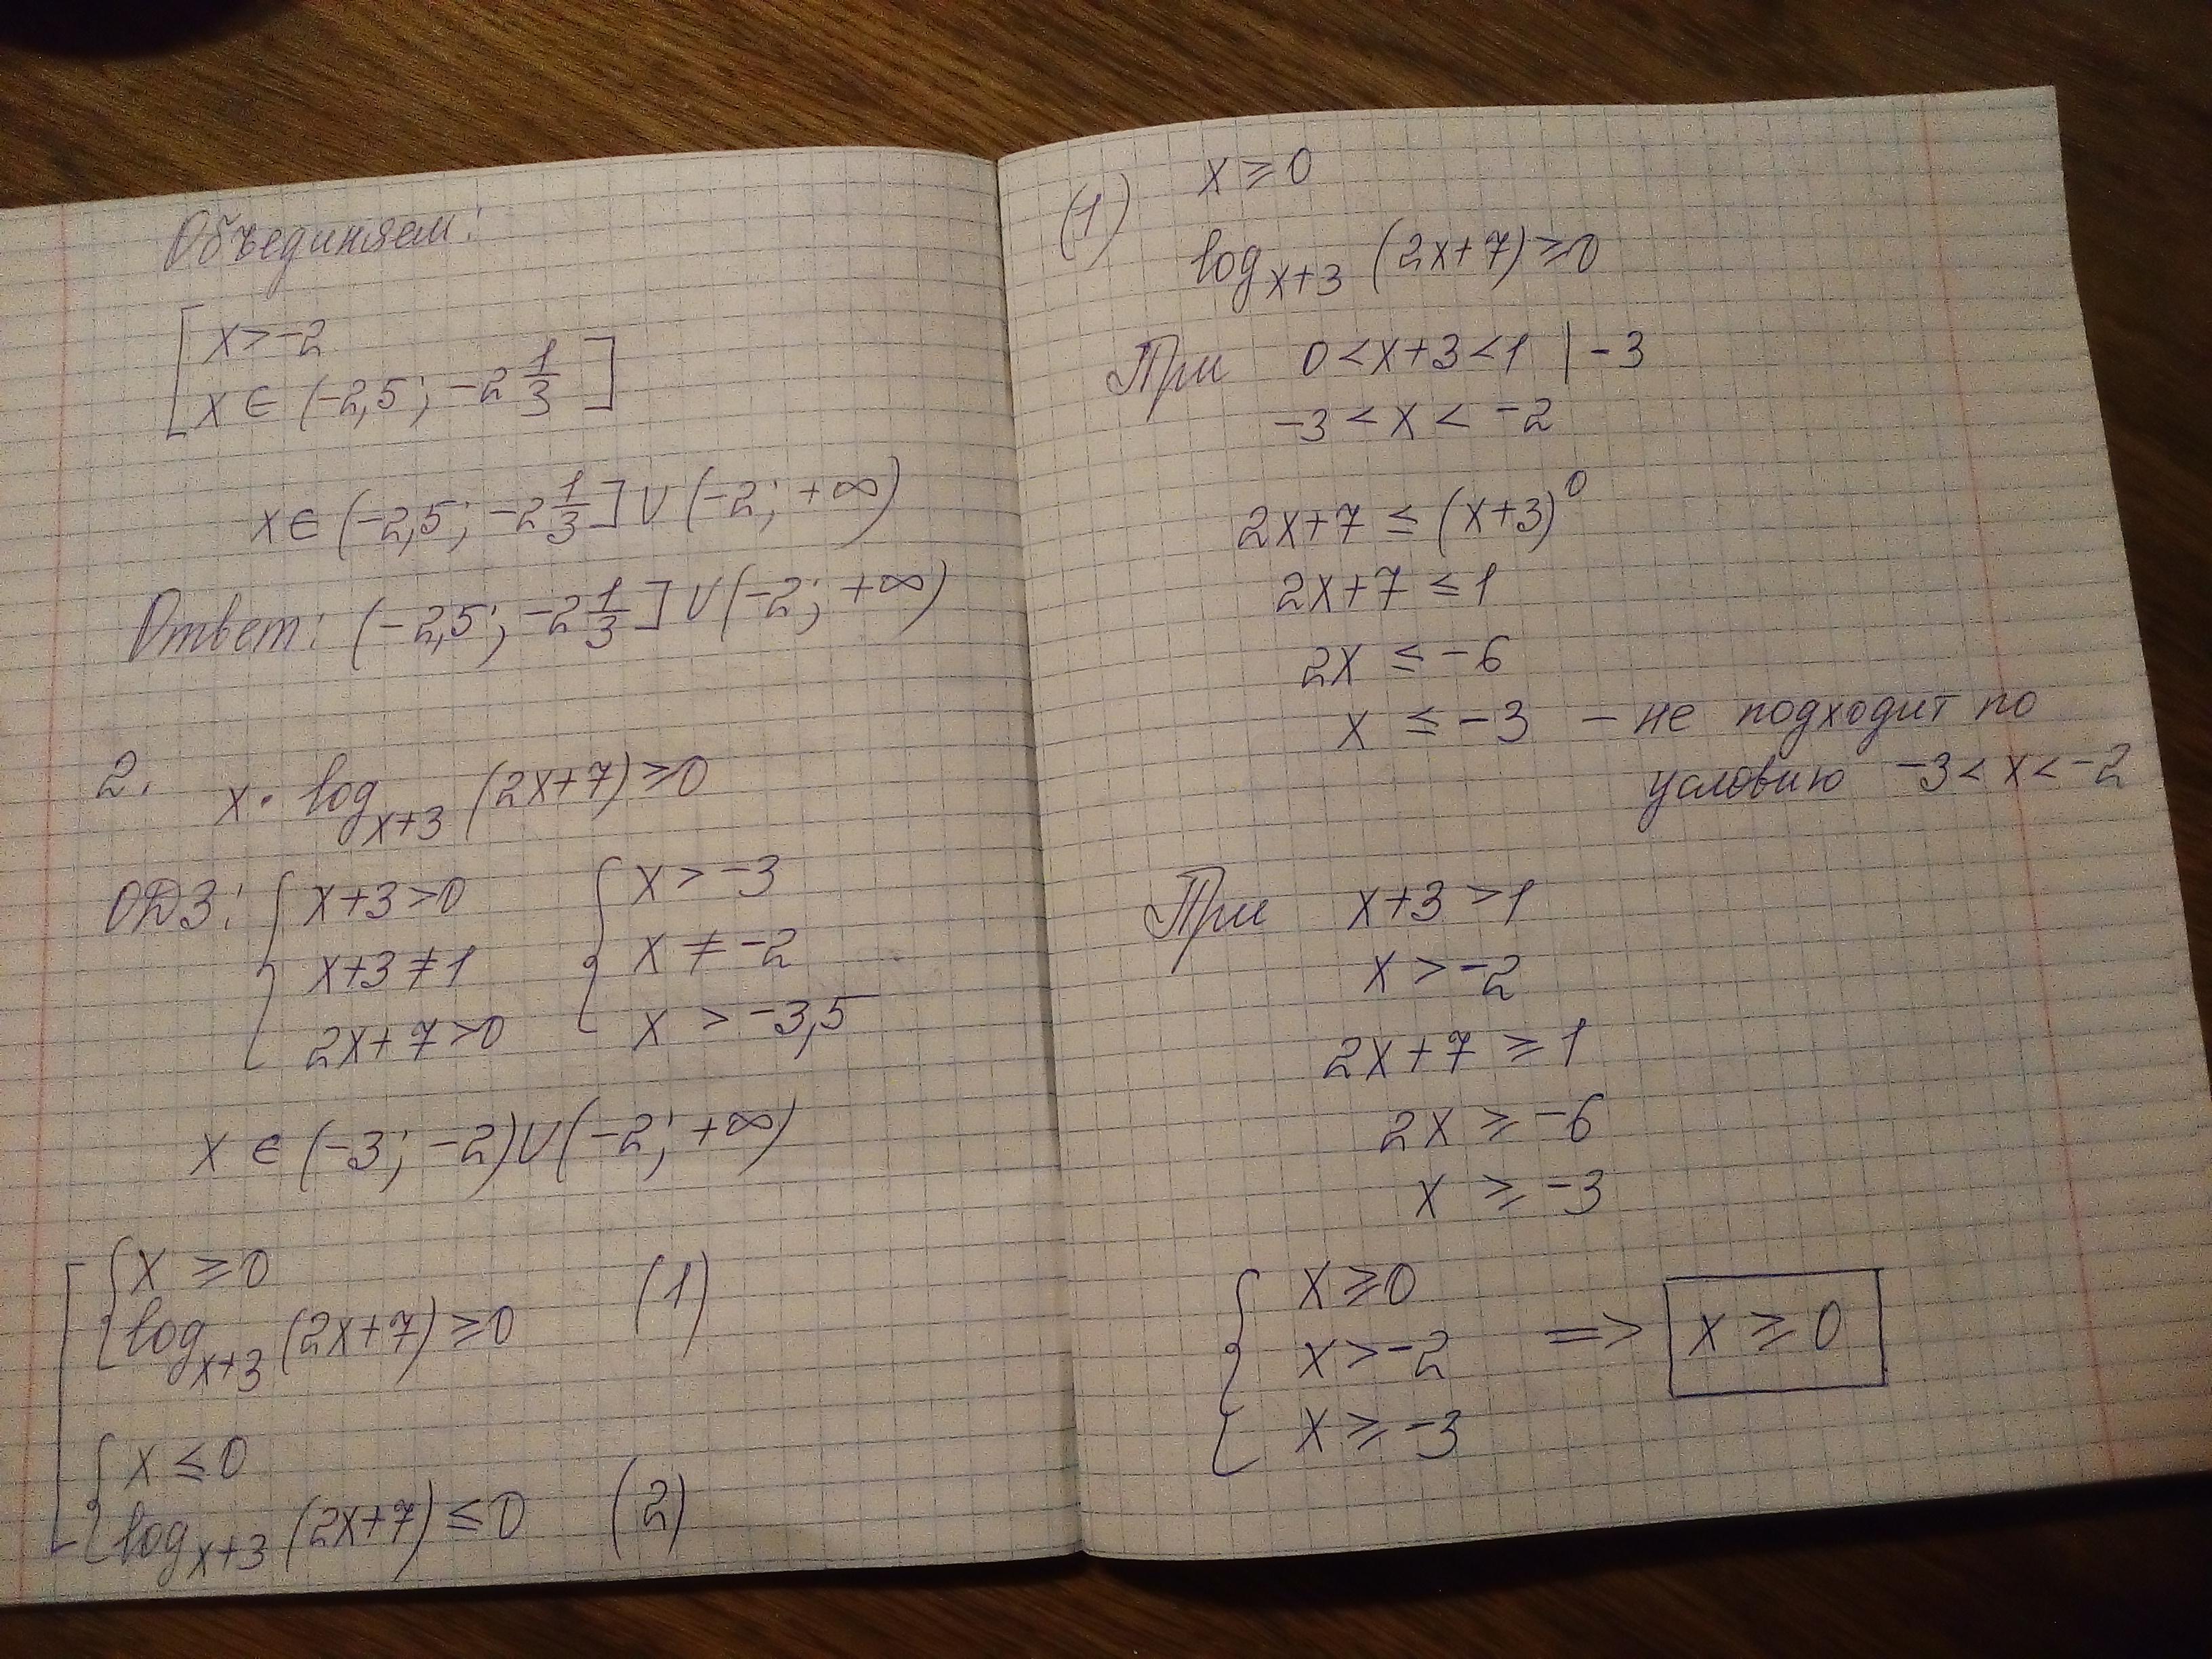 Объединяем:
[ x > -2
x ∈ (-2,5; -2 1/3 ]
x ∈ (-2,5; -2 1/3] ∪ (-2; +∞)
Ответ: (-2,5; -2 1/3] ∪ (-2; +∞)
2. x · log_{x+3} (2x+7) ≥ 0
ОДЗ: { x+3 > 0 { x > -3
x+3 ≠ 1 x ≠ -2
2x+7 > 0 x > -3,5
x ∈ (-3; -2) ∪ (-2; +∞)
[ { x ≥ 0
log_{x+3} (2x+7) ≥ 0 (1)
{ x ≤ 0
log_{x+3} (2x+7) ≤ 0 (2)
(1) x ≥ 0
log_{x+3} (2x+7) ≥ 0
При 0 < x+3 < 1 | -3
-3 < x < -2
2x+7 ≤ (x+3)^0
2x+7 ≤ 1
2x ≤ -6
x ≤ -3 – не подходит по
условию -3 < x < -2
При x+3 > 1
x > -2
2x+7 ≥ 1
2x ≥ -6
x ≥ -3
{ x ≥ 0
x > -2 => x ≥ 0
x ≥ -3